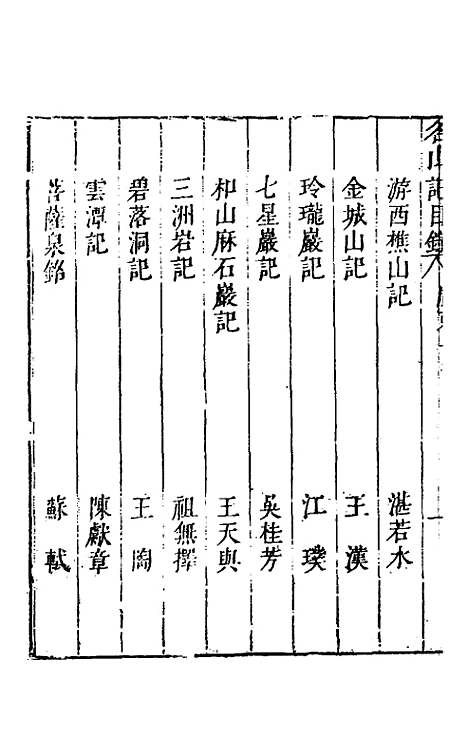 名山記目錄
游西樵山記　湛若水
金城山記　王漢
玲瓏巖記　江璞
七星巖記　吳桂芳
和山麻石巖記　王天與
三洲岩記　祖無擇
碧落洞記　王陶
雲潭記　陳獻章
菩薩泉銘　蘇軾